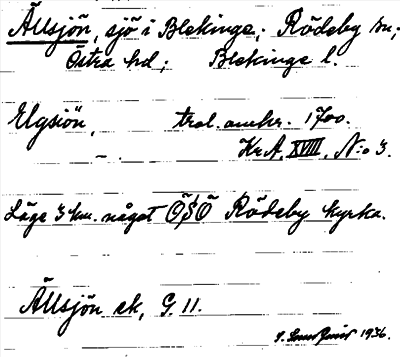 Ällsjön, sjö i Blekinge; Rödeby sn;
Östra hd; Blekinge l.
Elgsiön, trol. omkr. 1700.
Kr.A. XVIII, N:o 3.
Läge 3 km. något ÖSÖ Rödeby kyrka.
Ällsjön ek, G. 11.
1936.